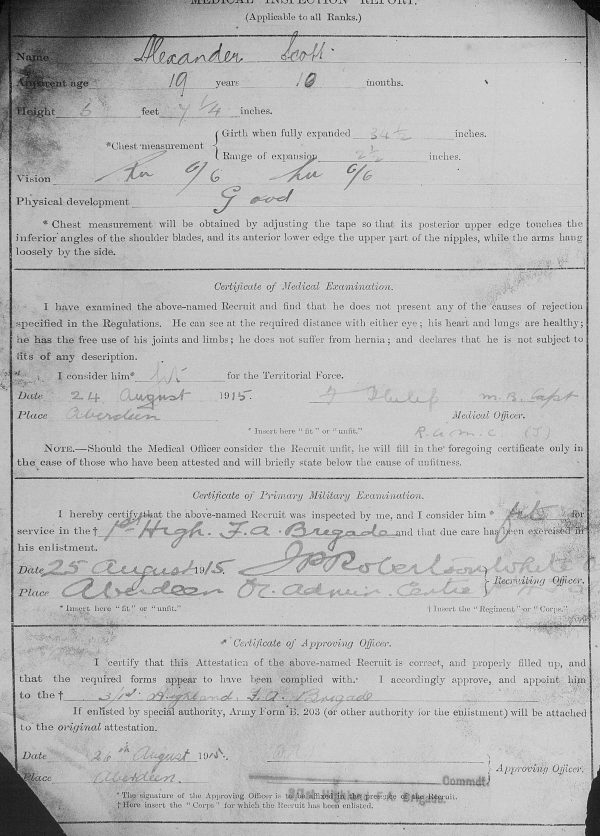 MEDICAL INSPECTION REPORT.
(Applicable to all Ranks.)
Name Alexander Scott
Apparent age 19 years 10 months.
Height 5 feet 7 1/4 inches.
*Chest measurement { Girth when fully expanded 34 1/2 inches.
Range of expansion 2 1/2 inches.
Vision 6/6 6/6
Physical development Good
* Chest measurement will be obtained by adjusting the tape so that its posterior upper edge touches the
inferior angles of the shoulder blades, and its anterior lower edge the upper part of the nipples, while the arms hang
loosely by the side.
Certificate of Medical Examination.
I have examined the above-named Recruit and find that he does not present any of the causes of rejection
specified in the Regulations. He can see at the required distance with either eye; his heart and lungs are healthy;
he has the free use of his joints and limbs; he does not suffer from hernia; and declares that he is not subject to
fits of any description.
I consider him* fit for the Territorial Force.
Date 24 August 1915. M.B. Capt
Place Aberdeen Medical Officer.
* Insert here "fit" or "unfit." R.A.M.C. (T)
NOTE.—Should the Medical Officer consider the Recruit unfit, he will fill in the foregoing certificate only in
the case of those who have been attested and will briefly state below the cause of unfitness.
Certificate of Primary Military Examination.
I hereby certify that the above-named Recruit was inspected by me, and I consider him * fit for
service in the † 1st High. F.A. Brigade and that due care has been exercised in
his enlistment.
Date 25 August 1915. J P Robertson White
Place Aberdeen Or. Admin. Centre } Recruiting Officer.
* Insert here "fit" or "unfit." † Insert the "Regiment" or "Corps."
* Certificate of Approving Officer.
I certify that this Attestation of the above-named Recruit is correct, and properly filled up, and
that the required forms appear to have been complied with. I accordingly approve, and appoint him
to the † 3/1st Highland F.A. Brigade
If enlisted by special authority, Army Form B. 203 (or other authority for the enlistment) will be attached
to the original attestation.
Date August 1915.
Place Aberdeen. } Approving Officer.
Commdt.
F.A. Brigade.
* The signature of the Approving Officer is to be affixed in the presence of the Recruit.
† Here insert the "Corps" for which the Recruit has been enlisted.